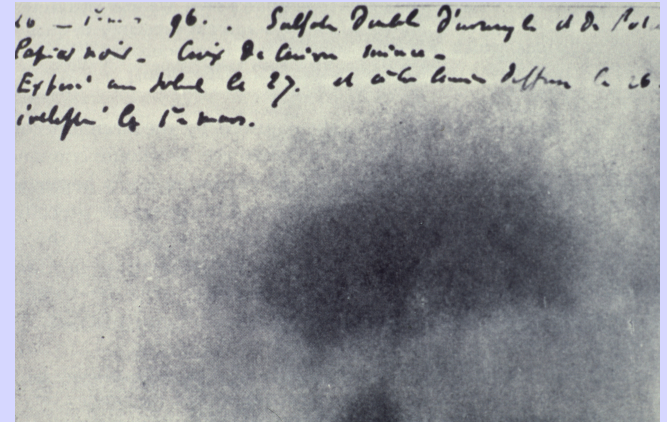 96. Sulfate Double d'uranyle et de Pot
Papier noir. Croix de Cuivre mince.
Exposé au soleil le 27. et à la lumière diffuse le 26
le 1er mars.